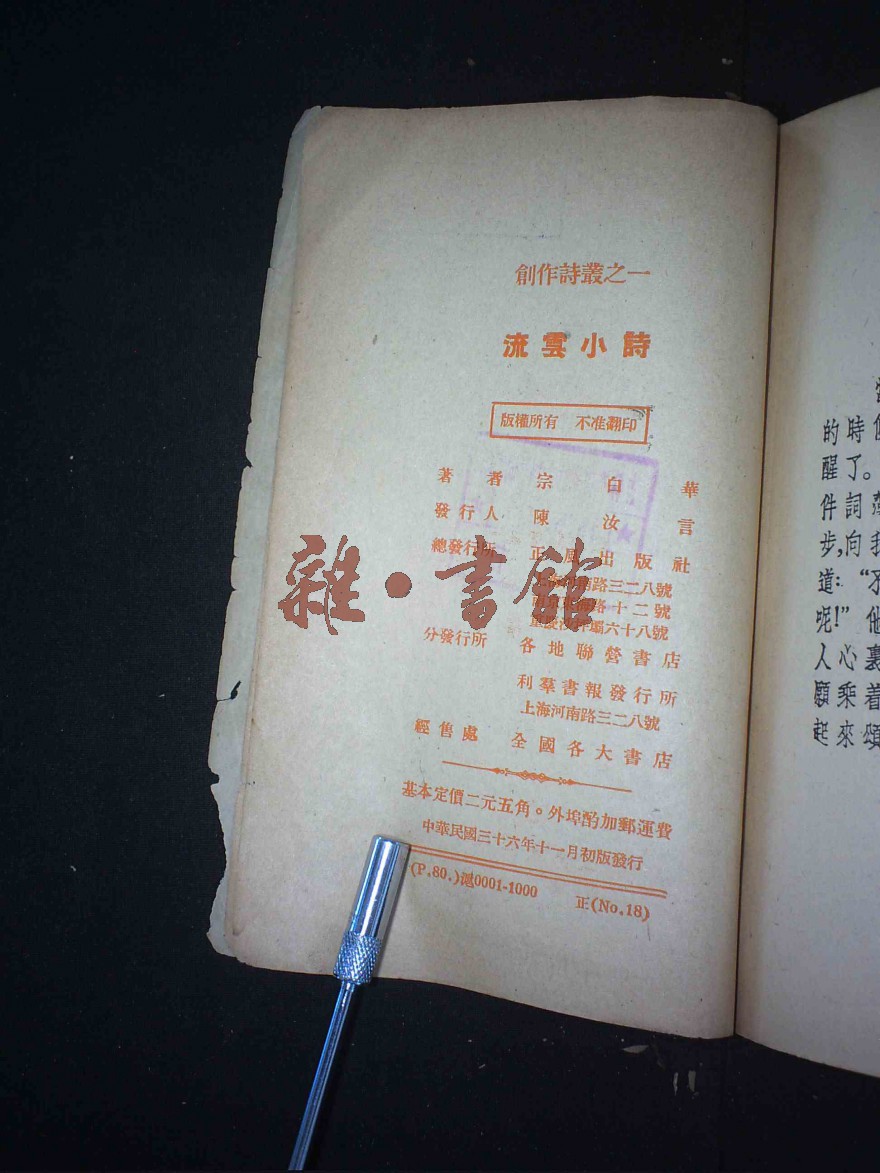 創作詩叢之一
流雲小詩
版權所有 不准翻印
著者 宗白華
發行人 陳汝言
總發行所 正風出版社
南路三二八號
路十二號
六十八號
分發行所 各地聯營書店
利羣書報發行所
上海河南路三二八號
經售處 全國各大書店
基本定價二元五角。外埠酌加郵運費
中華民國三十六年十一月初版發行
(P.80.)滬0001-1000 正(No.18)
雜·書館
的時
醒了。
件詞
步,向我
道:“不
呢!”他
人心裏
願乘着
起來頌